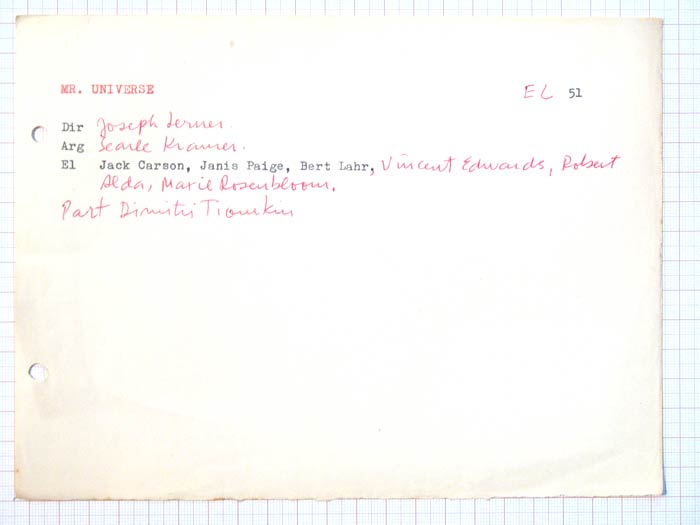 MR. UNIVERSE EL 51
Dir Joseph Lerner.
Arg Searle Kramer.
El Jack Carson, Janis Paige, Bert Lahr, Vincent Edwards, Robert
Alda, Maxie Rosenbloom.
Part Dimitri Tiomkin